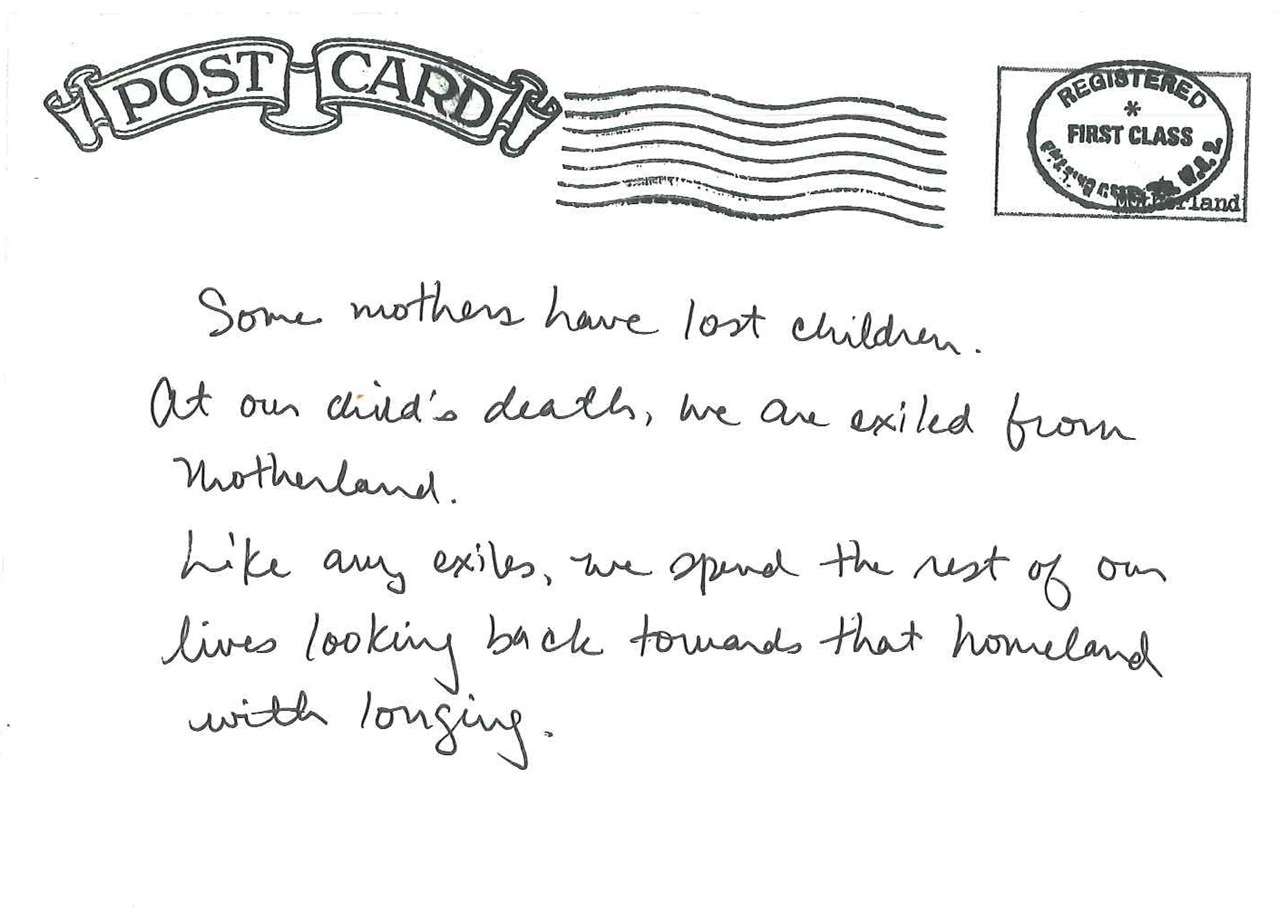 POST CARD
REGISTERED
*
FIRST CLASS
Motherland
Some mothers have lost children.
At our child's death, we are exiled from
Motherland.
Like any exiles, we spend the rest of our
lives looking back towards that homeland
with longing.